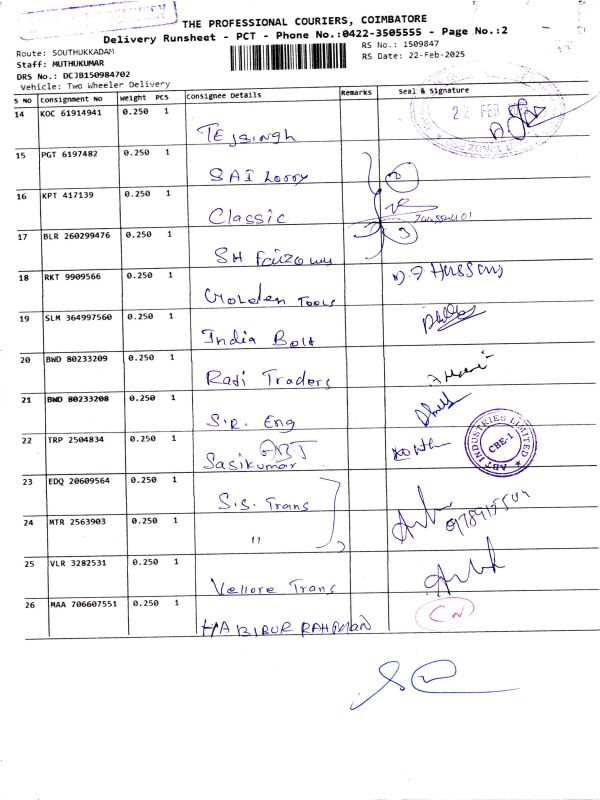 THE PROFESSIONAL COURIERS, COIMBATORE
Delivery Runsheet - PCT - Phone No.:0422-3505555 - Page No.:2
Route: SOUTHUKKADAM
RS No.: 1509847
Staff: MUTHUKUMAR
RS Date: 22-Feb-2025
DRS No.: DCJB150984702
Vehicle: Two Wheeler Delivery
S No Consignment No Weight PCS Consignee Details Remarks Seal & Signature
14 KOC 61914941 0.250 1
22 FEB
Tejsingh
15 PGT 6197482 0.250 1
SAI Lorry
16 KPT 417139 0.250 1
Classic
17 BLR 260299476 0.250 1
SH
18 RKT 9909566 0.250 1
Golden Tools
19 SLM 364997560 0.250 1
India Bolt
20 BWD 80233209 0.250 1
Raji Traders
21 BWD 80233208 0.250 1
S.R. Eng
22 TRP 2504834 0.250 1
ABT
Sasikumar
ABT INDUSTRIES LIMITED
CBE-1
23 EDQ 20609564 0.250 1
S.S. Trans
24 MTR 2563903 0.250 1
"
25 VLR 3282531 0.250 1
Vellore Trans
26 MAA 706607551 0.250 1
CN
HABIBUR RAHMAN